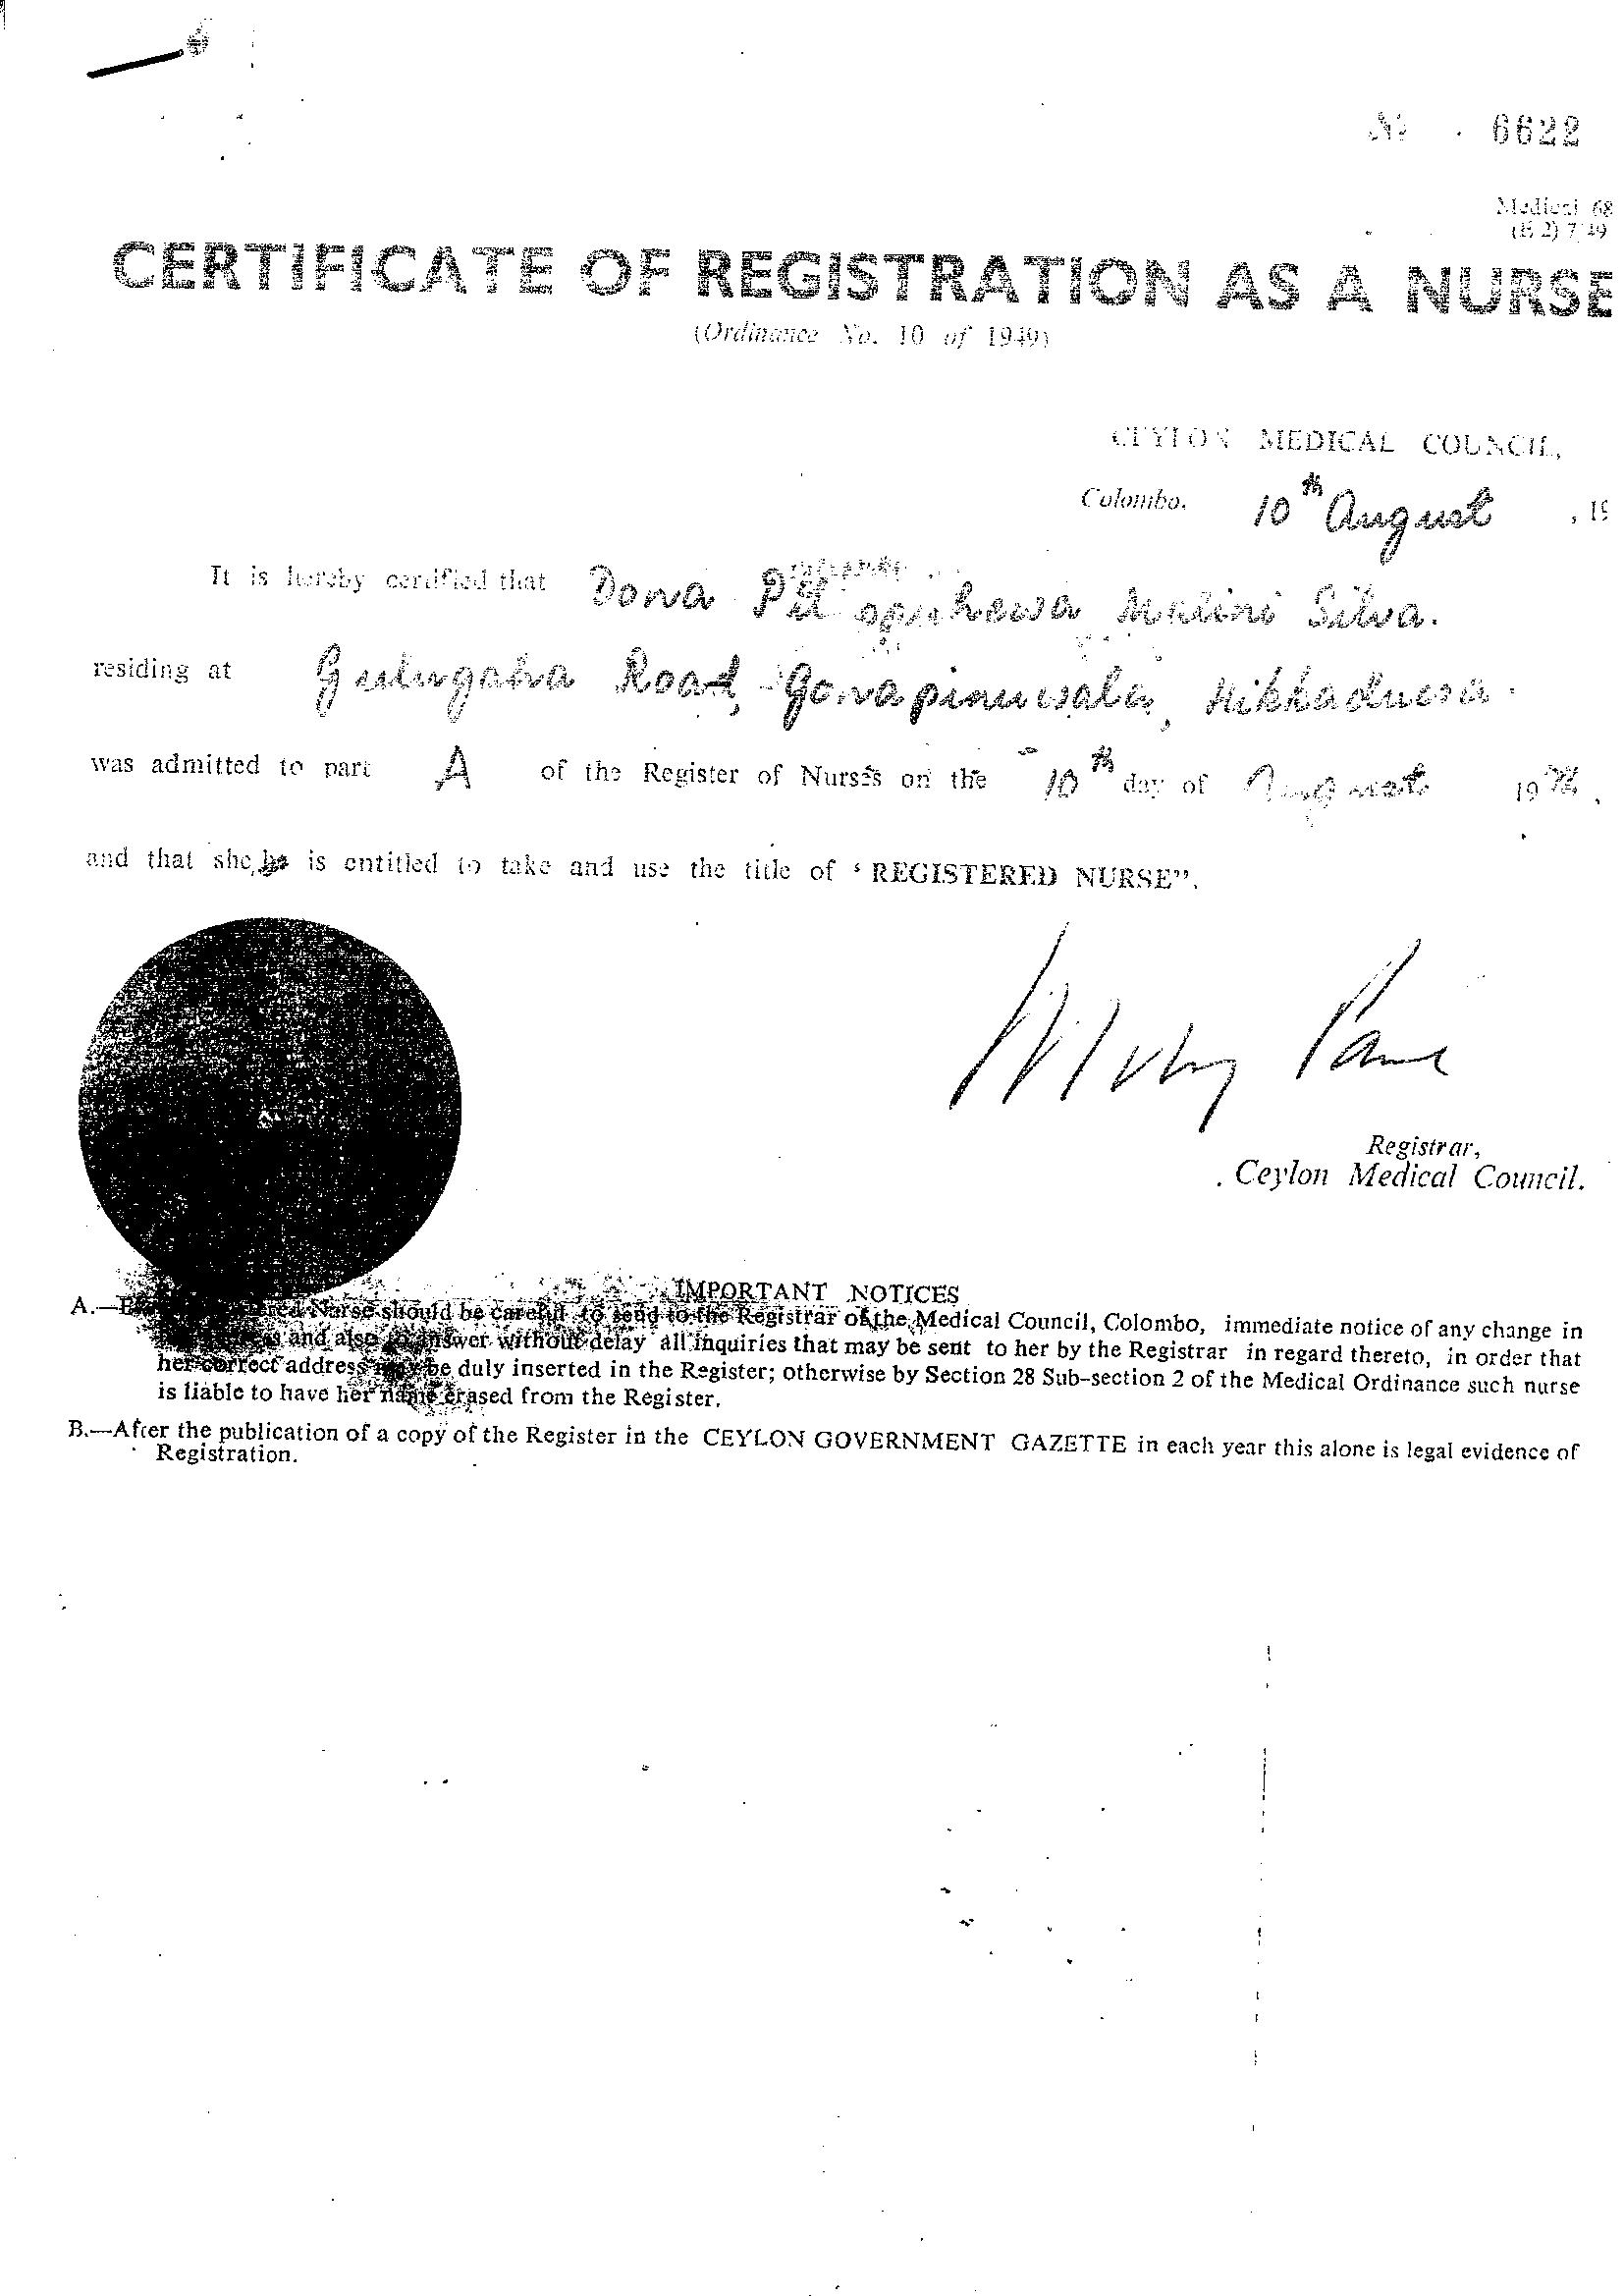 No. 6622
Medical 68
CERTIFICATE OF REGISTRATION AS A NURSE
(Ordinance No. 10 of 1949)
CEYLON MEDICAL COUNCIL,
Colombo, 10th August , 19
It is hereby certified that Dona Malini Silva.
residing at Road, Gonapinuwala, Hikkaduwa.
was admitted to part A of the Register of Nurses on the 10th day of August 19
and that she/he is entitled to take and use the title of "REGISTERED NURSE".
Registrar,
Ceylon Medical Council.
IMPORTANT NOTICES
A.— Nurse should be careful to send to the Registrar of the Medical Council, Colombo, immediate notice of any change in
and also to answer without delay all inquiries that may be sent to her by the Registrar in regard thereto, in order that
her correct address may be duly inserted in the Register; otherwise by Section 28 Sub-section 2 of the Medical Ordinance such nurse
is liable to have her name erased from the Register.
B.—After the publication of a copy of the Register in the CEYLON GOVERNMENT GAZETTE in each year this alone is legal evidence of
Registration.